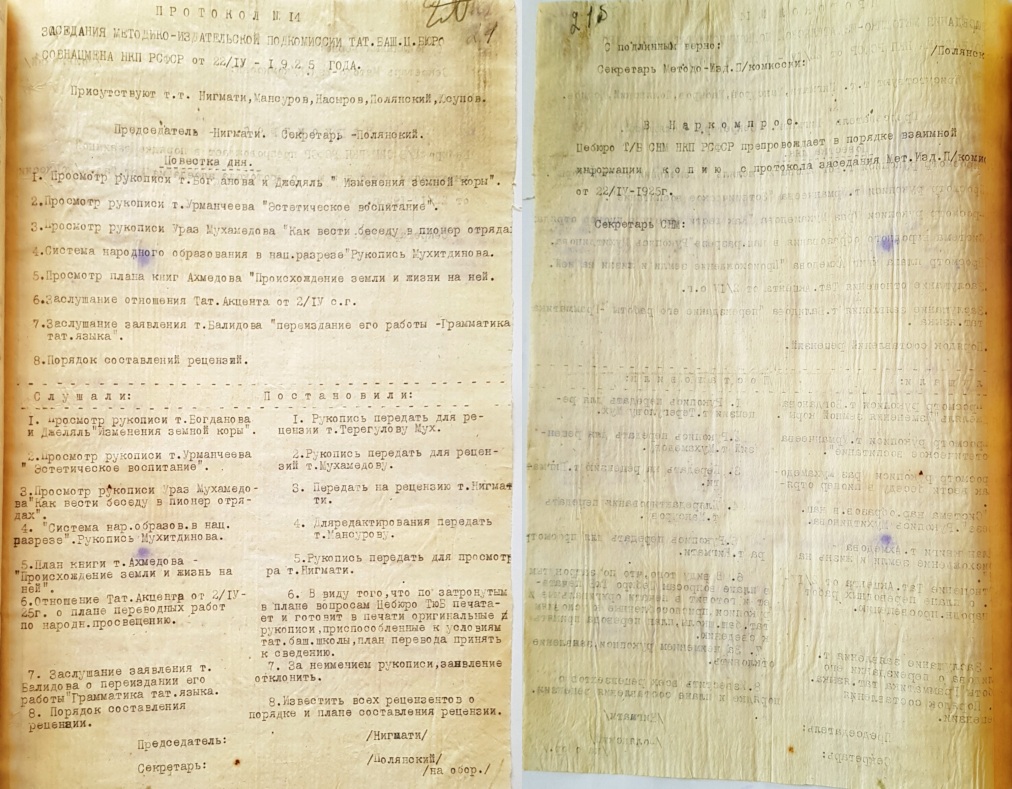 П Р О Т О К О Л № 14
ЗАСЕДАНИЯ МЕТОДИКО-ИЗДАТЕЛЬСКОЙ ПОДКОМИССИИ ТАТ.БАШ.Ц.БЮРО
СОВНАЦМЕНА НКП РСФСР от 22/IV - 1925 ГОДА.
Присутствуют т.т. Нигмати,Мансуров,Насыров,Полянский,Юсупов.
Председатель -Нигмати. Секретарь -Полянский.
Повестка дня.
1. Просмотр рукописи т.Богданова и Джедяль " Изменения земной коры".
2.Просмотр рукописи т.Урманчеева "Эстетическое воспитание".
3.Просмотр рукописи Ураз Мухамедова "Как вести беседу в пионер отряда
4.Система народного образования в нац.разрезе"Рукопись Мухитдинова.
5.Просмотр плана книг Ахмедова "Происхождение земли и жизни на ней.
6.Заслушание отношения Тат.Акцента от 2/IV с.г.
7.Заслушание заявления т.Балидова "переиздание его работы -Грамматика
тат.языка".
8.Порядок составлений рецензий.
С л у ш а л и:
1. Просмотр рукописи т.Богданова
и Джеляль"Изменения земной коры".
2.Просмотр рукописи т.Урманчеева
" Эстетическое воспитание".
3.Просмотр рукописи Ураз Мухамедо-
ва"Как вести беседу в пионер отря-
дах".
4. "Система нар.образов.в нац.
разрезе".Рукопись Мухитдинова.
5.План книги т.Ахмедова -
"Происхождение земли и жизнь на
ней".
6.Отношение Тат.Акцента от 2/IV-
25г. о плане переводных работ
по народн.просвещению.
7. Заслушание заявления т.
Балидова о переиздании его
работы"Грамматика тат.языка.
8. Порядок составления
рецензии.
П о с т а н о в и л и:
1. Рукопись передать для ре-
цензии т.Терегулову Мух.
2.Рукопись передать для рецен-
зий т.Мухамедову.
3. Передать на рецензию т.Нигмат
ти.
4. Дляредактирования передать
т.Мансурову.
5.Рукопись передать для просмотр
ра т.Нигмати.
6. В виду того,что по затронутым
в плане вопросам Цебюро ТюБ печата-
ет и готовит в печати оригинальные
рукописи,приспособленные к условиям
тат.баш.школы,план перевода принять
к сведению.
7. За неимением рукописи,заявление
отклонить.
8.Известить всех рецензентов о
порядке и плане составления рецензии.
Председатель: /Нигмати/
Секретарь: /Полянский/
/на обор./
215
С подлинным верно: /Полянск
Секретарь Методо-Изд.П/комиссии:
В Н а р к о м п р о с.
Цебюро Т/Б СНМ НКП РСФСР препровождает в порядке взаимной
информации к о п и ю с протокола заседания Мет.Изд.П/коми
от 22/IV-1925г.
Секретарь СНМ: